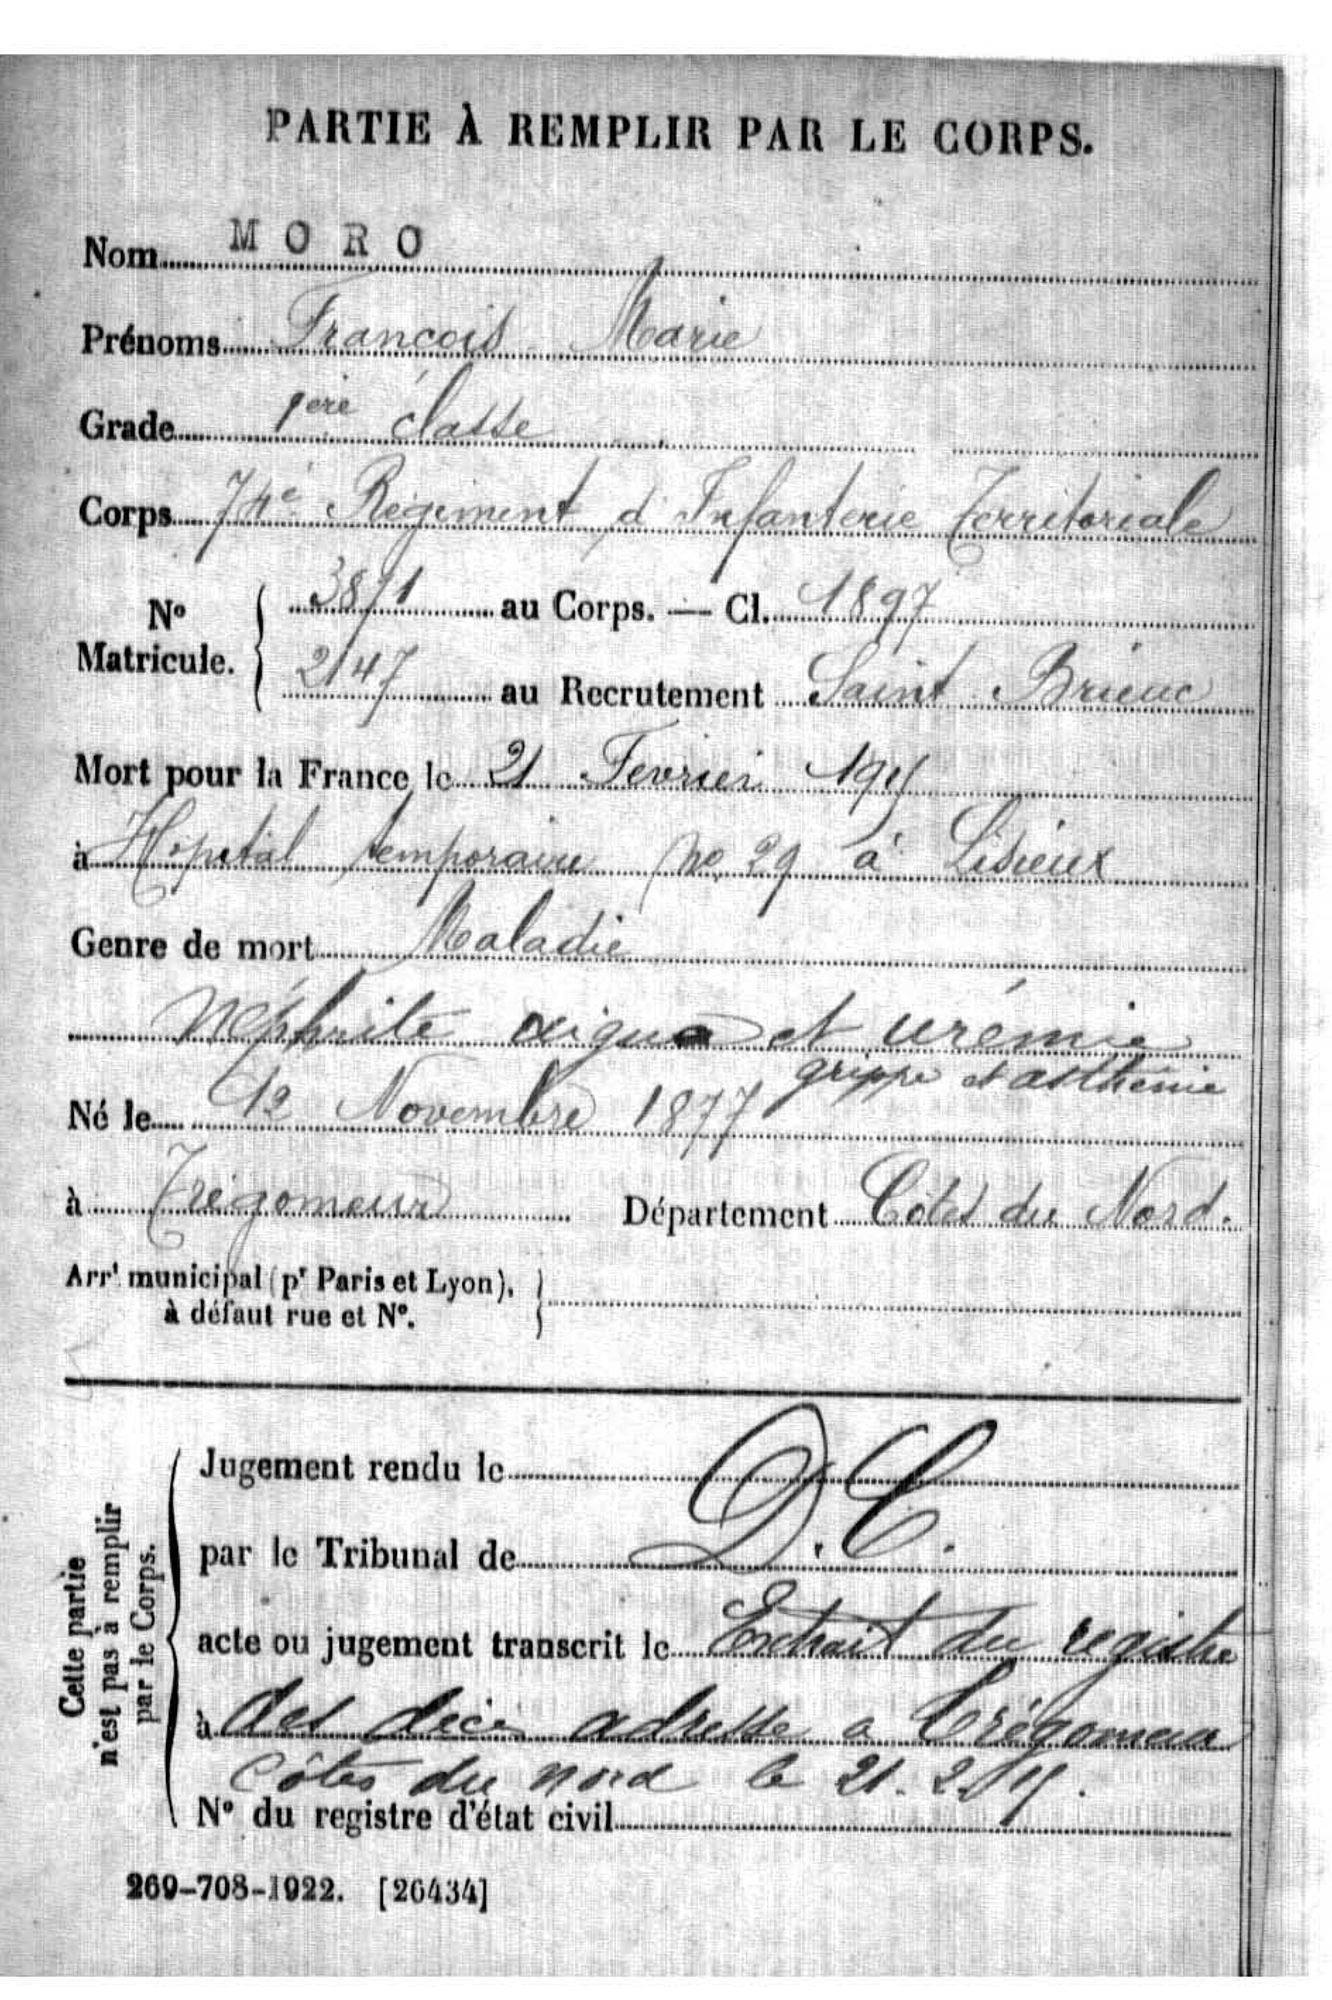 PARTIE À REMPLIR PAR LE CORPS.
Nom MORO
Prénoms François Marie
Grade 1ère classe
Corps 74e Régiment d'Infanterie Territoriale
No Matricule. { 3871 au Corps. — Cl. 1897
2147 au Recrutement Saint Brieuc
Mort pour la France le 21 Fevrier 1915
à Hopital temporaire No 29 à Lisieux
Genre de mort Maladie
Néphrite aigue et urémie
grippe et asthénie
Né le 12 Novembre 1877
à Trégomeur Département Côtes du Nord.
Arrt municipal (pr Paris et Lyon),
à défaut rue et No.
Cette partie
n'est pas à remplir
par le Corps.
Jugement rendu le
par le Tribunal de D.C.
acte ou jugement transcrit le Extrait du registre
à des décès adresse a Trégomeur
Côtes du Nord le 21.2.15.
No du registre d'état civil
269-708-1922. [26434]